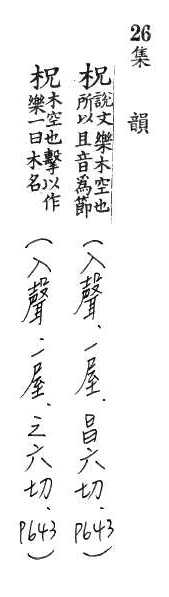 26 集韻
柷 說文樂木空也
所以且音為節
（入聲、一屋、昌六切、P643）
柷 木空也擊以作
樂一曰木名
（入聲、一屋、之六切、P643）